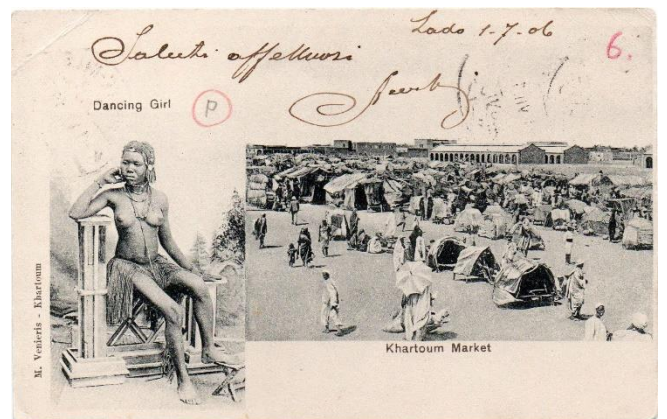 Lado 1-7-06
Saluti affettuosi
6.
Dancing Girl
P
M. Venieris - Khartoum
Khartoum Market